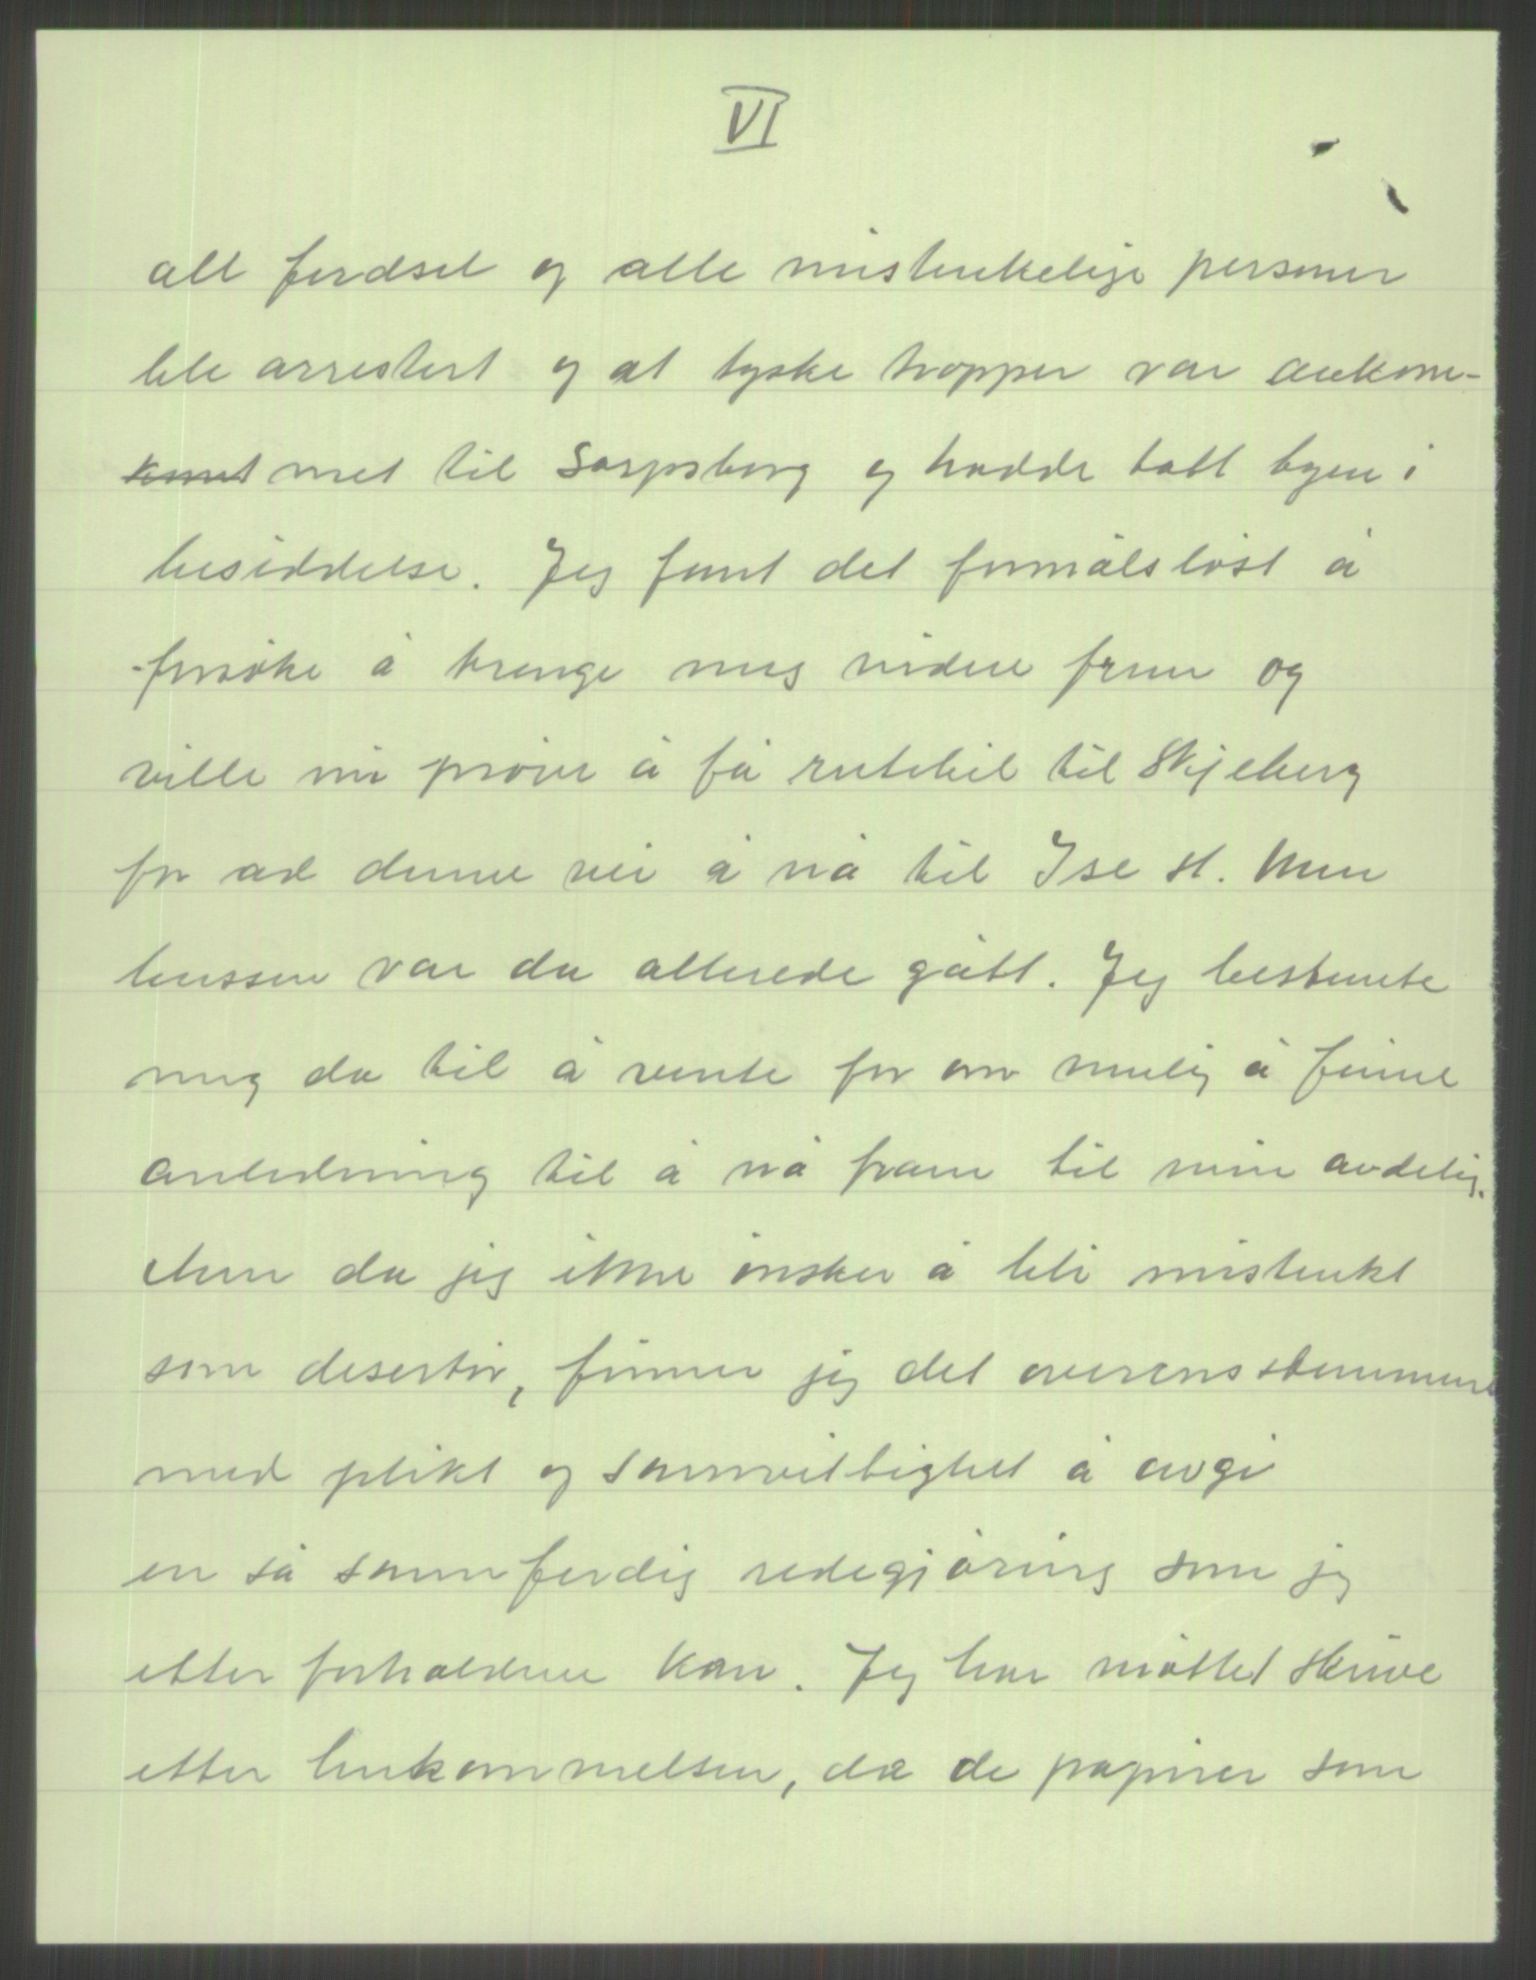 VI
all ferdsel og alle mistenkelige personer
ble arrestert og at tyske tropper var ankom-
met til Sarpsborg og hadde tatt byen i
besiddelse. Jeg fant det formålsløst å
forsøke å trenge meg videre frem og
ville nu prøve å få rutebil til Skjeberg
for ad denne vei å nå til Ise st. Men
bussen var da allerede gått. Jeg bestemte
meg da til å vente for om mulig å finne
anledning til å nå fram til min avdelig.
Men da jeg ikke ønsker å bli mistenkt
som desertør, finner jeg det overensstemmend
med plikt og samvittighet å avgi
en så sannferdig redegjøring som jeg
etter forholdene kan. Jeg har måttet skrive
etter hukommelsen, da de papirer som